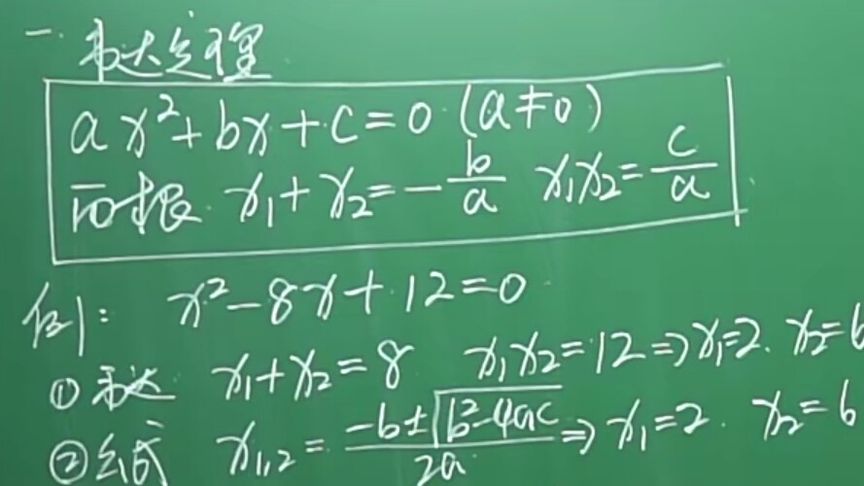 一. 韦达定理
ax²+bx+c=0 (a≠0)
两根 x₁+x₂=-b/a x₁x₂=c/a
例: x²-8x+12=0
①韦达 x₁+x₂=8 x₁x₂=12⇒x₁=2. x₂=6
②公式 x₁,₂=(-b±√(b²-4ac))/(2a)⇒x₁=2. x₂=6